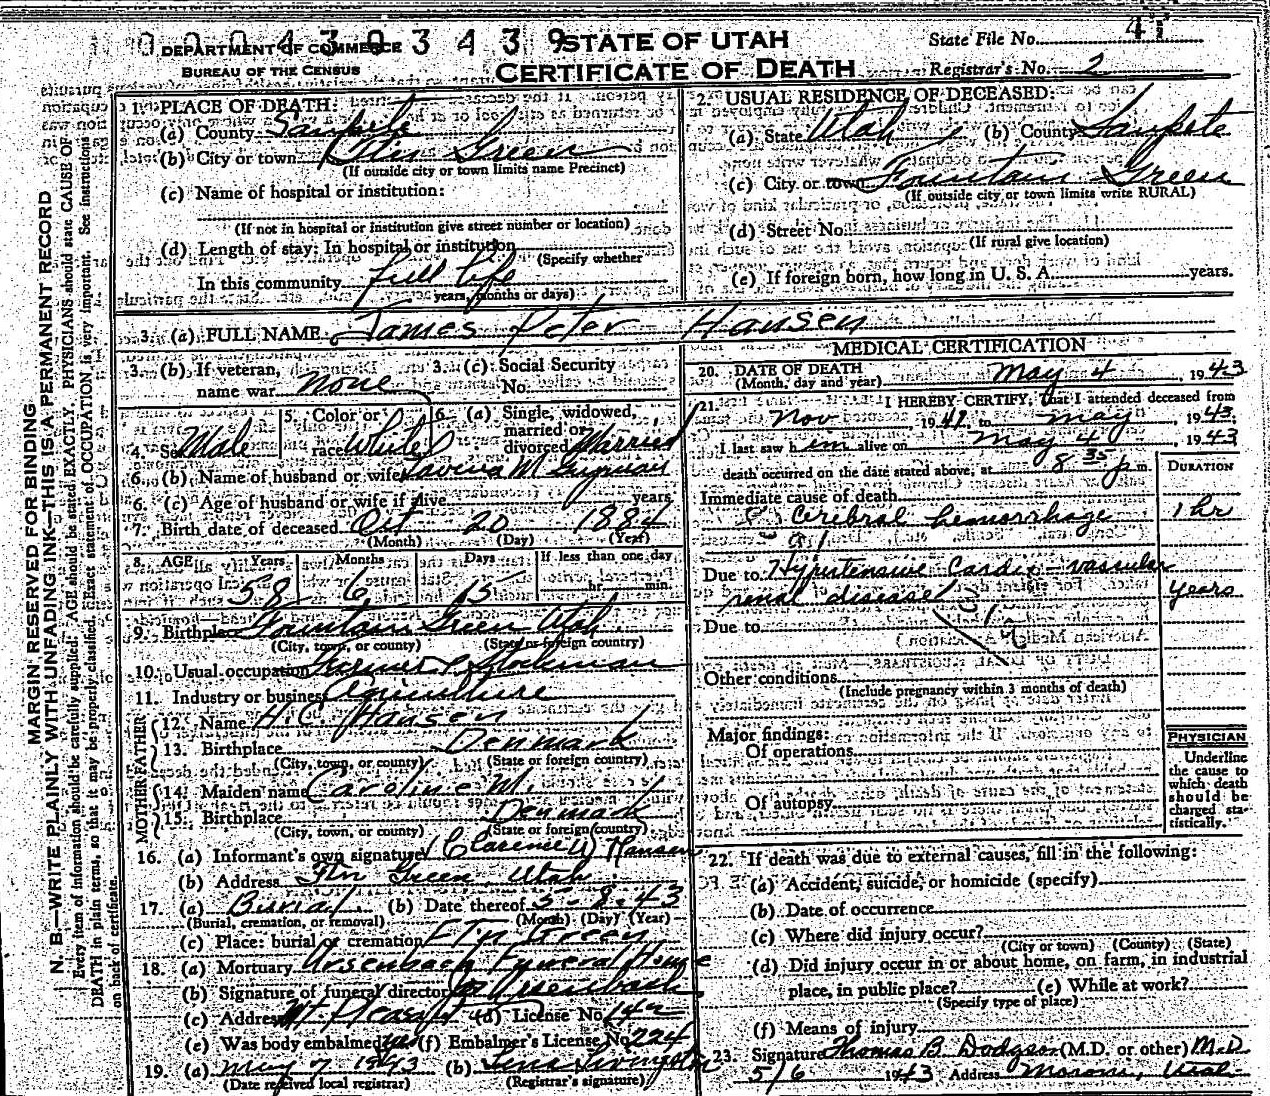 0 0 0 4 3 0 3 4 3 9
DEPARTMENT OF COMMERCE
BUREAU OF THE CENSUS
STATE OF UTAH
CERTIFICATE OF DEATH
State File No.
Registrar's No. 2
MARGIN RESERVED FOR BINDING
N. B.—WRITE PLAINLY WITH UNFADING INK—THIS IS A PERMANENT RECORD
Every item of information should be carefully supplied. AGE should be stated EXACTLY. PHYSICIANS should state CAUSE OF
DEATH in plain terms, so that it may be properly classified. Exact statement of OCCUPATION is very important. See instructions
on back of certificate.
1. PLACE OF DEATH:
(a) County Sanpete
(b) City or town Ftn Green
(If outside city or town limits name Precinct)
(c) Name of hospital or institution:
(If not in hospital or institution give street number or location)
(d) Length of stay: In hospital or institution
(Specify whether
In this community full life
years, months or days)
2. USUAL RESIDENCE OF DECEASED:
(a) State Utah (b) County Sanpete
(c) City or town Fountain Green
(If outside city or town limits write RURAL)
(d) Street No.
(If rural give location)
(e) If foreign born, how long in U. S. A. years.
3. (a) FULL NAME James Peter Hansen
3. (b) If veteran, name war None
3. (c) Social Security No.
4. Sex Male
5. Color or race White
6. (a) Single, widowed, married or divorced Married
6. (b) Name of husband or wife Lavina M.
6. (c) Age of husband or wife if alive years
7. Birth date of deceased Oct 20 1884
(Month) (Day) (Year)
8. AGE Years Months Days If less than one day
58 6 15 hr. min.
9. Birthplace Fountain Green Utah
(City, town, or county) (State or foreign country)
10. Usual occupation Farmer & Stockman
11. Industry or business Agriculture
FATHER
12. Name H.C. Hansen
13. Birthplace Denmark
(City, town, or county) (State or foreign country)
MOTHER
14. Maiden name Caroline M.
15. Birthplace Denmark
(City, town, or county) (State or foreign country)
16. (a) Informant's own signature Clarence W Hansen
(b) Address Ftn Green, Utah
17. (a) Burial (b) Date thereof 5-8-43
(Burial, cremation, or removal) (Month) (Day) (Year)
(c) Place: burial or cremation Ftn Green
18. (a) Mortuary Ursenbach Funeral Home
(b) Signature of funeral director Ursenbach
(c) Address Mt Pleasant (d) License No. 142
(e) Was body embalmed yes (f) Embalmer's License No. 224
19. (a) May 7 1943 (b) Lena Livingston
(Date received local registrar) (Registrar's signature)
MEDICAL CERTIFICATION
20. DATE OF DEATH
(Month, day and year) May 4, 1943
21. I HEREBY CERTIFY, that I attended deceased from
Nov 1941 to May, 1943.
I last saw him alive on May 4, 1943
death occurred on the date stated above, at 8 35 p m.
DURATION
Immediate cause of death
Cerebral hemorrhage 1 hr
Due to Hypertensive Cardio-vascular
renal disease years
Due to
Other conditions
(Include pregnancy within 3 months of death)
Major findings:
Of operations
Of autopsy
PHYSICIAN
Underline
the cause to
which death
should be
charged sta-
tistically.
22. If death was due to external causes, fill in the following:
(a) Accident, suicide, or homicide (specify)
(b) Date of occurrence
(c) Where did injury occur?
(City or town) (County) (State)
(d) Did injury occur in or about home, on farm, in industrial
place, in public place? (e) While at work?
(Specify type of place)
(f) Means of injury
23. Signature Thomas B. Dodgson (M.D. or other) M.D
5/6 1943 Address Moroni, Utah